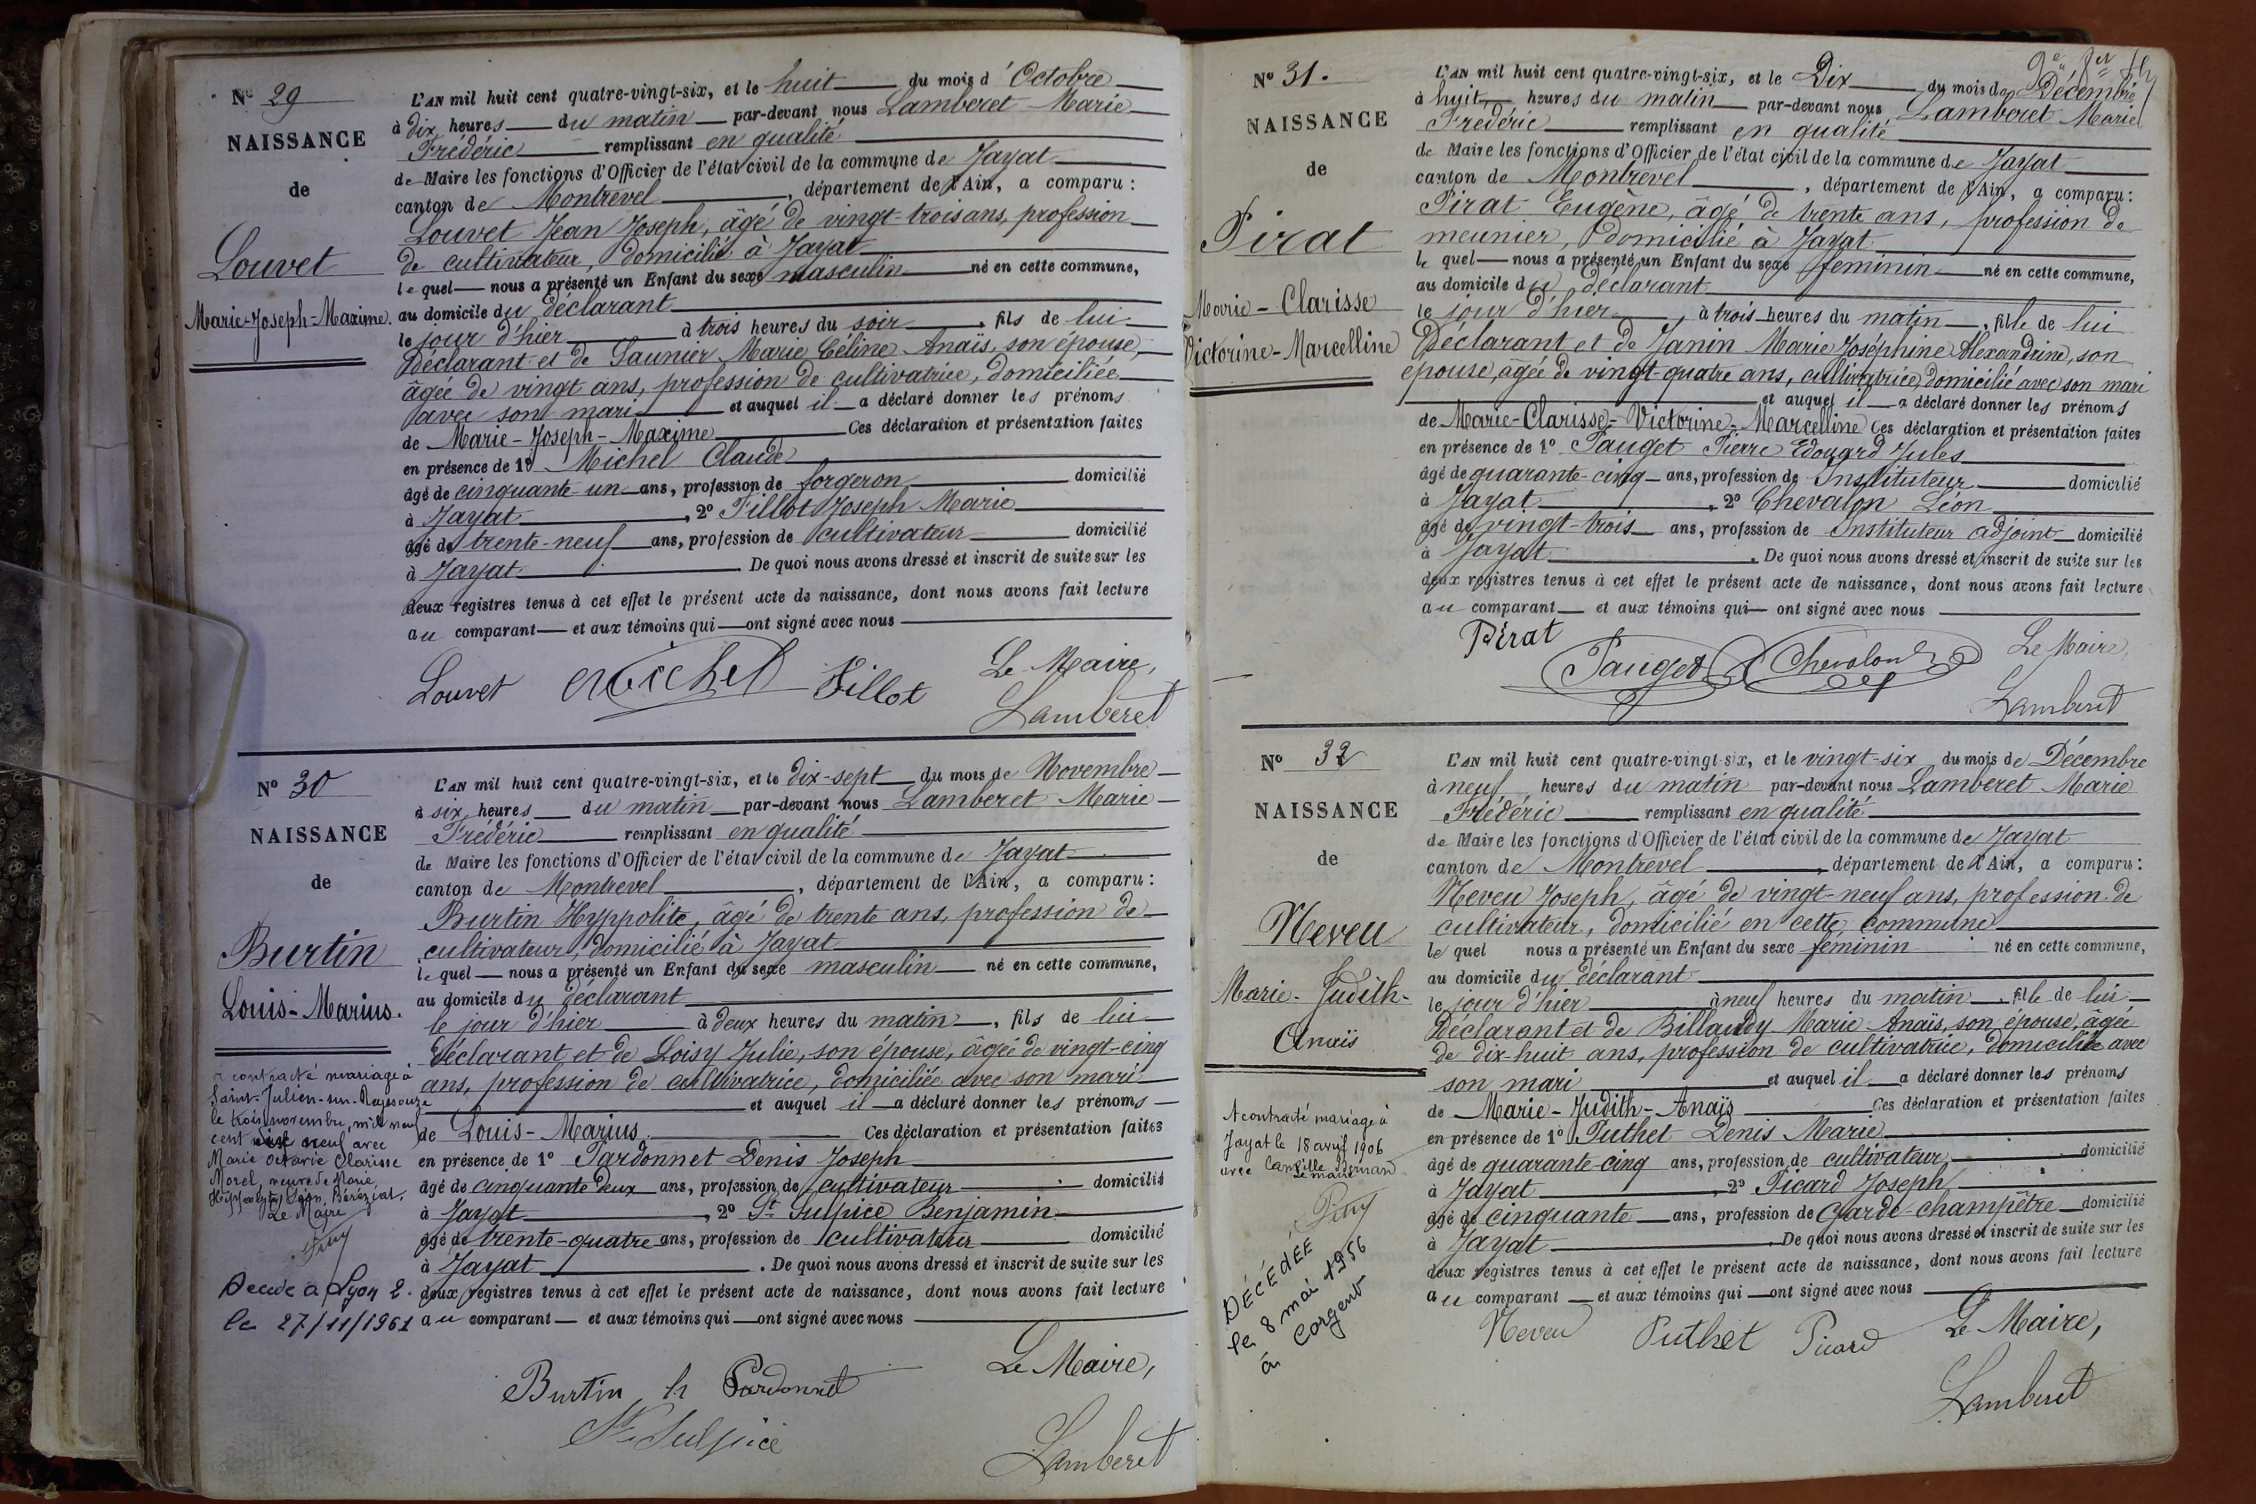 Nº 29
NAISSANCE
de
Louvet
Marie-Joseph-Maxime.
L'AN mil huit cent quatre-vingt-six, et le huit du mois d'Octobre
à dix heures du matin par-devant nous Lamberet Marie
Frédéric remplissant en qualité
de Maire les fonctions d'Officier de l'état civil de la commune de Jayat
canton de Montrevel, département de l'Ain, a comparu :
Louvet Jean Joseph, âgé de vingt-trois ans, profession
de cultivateur, domicilié à Jayat
le quel nous a présenté un Enfant du sexe masculin né en cette commune,
au domicile du déclarant
le jour d'hier à trois heures du soir, fils de lui
Déclarant et de Saunier Marie Céline Anaïs, son épouse,
âgée de vingt ans, profession de cultivatrice, domiciliée
avec son mari et auquel il a déclaré donner les prénoms
de Marie-Joseph-Maxime Ces déclaration et présentation faites
en présence de 1º Michel Claude
âgé de cinquante un ans, profession de forgeron domicilié
à Jayat, 2º Fillot Joseph Marie
âgé de trente-neuf ans, profession de cultivateur domicilié
à Jayat. De quoi nous avons dressé et inscrit de suite sur les
deux registres tenus à cet effet le présent acte de naissance, dont nous avons fait lecture
au comparant et aux témoins qui ont signé avec nous
Louvet Michel Fillot Le Maire,
Lamberet
Nº 30
NAISSANCE
de
Burtin
Louis-Marius.
a contracté mariage à
Saint-Julien-sur-Reyssouze
le trois novembre, mil neuf
cent neuf avec
Marie Octavie Clarisse
Morel, veuve de Marie
Léon Béréziat.
Le Maire
Décédé à Lyon 2.
le 27/11/1961
L'AN mil huit cent quatre-vingt-six, et le dix-sept du mois de Novembre
à six heures du matin par-devant nous Lamberet Marie
Frédéric remplissant en qualité
de Maire les fonctions d'Officier de l'état civil de la commune de Jayat
canton de Montrevel, département de l'Ain, a comparu :
Burtin Hyppolite, âgé de trente ans, profession de
cultivateur, domicilié à Jayat
le quel nous a présenté un Enfant du sexe masculin né en cette commune,
au domicile du déclarant
le jour d'hier à deux heures du matin, fils de lui
Déclarant et de Loisy Julie, son épouse, âgée de vingt-cinq
ans, profession de cultivatrice, domiciliée avec son mari
et auquel il a déclaré donner les prénoms
de Louis-Marius Ces déclaration et présentation faites
en présence de 1º Pardonnet Denis Joseph
âgé de cinquante deux ans, profession de cultivateur domicilié
à Jayat, 2º St Sulpice Benjamin
âgé de trente-quatre ans, profession de cultivateur domicilié
à Jayat. De quoi nous avons dressé et inscrit de suite sur les
deux registres tenus à cet effet le présent acte de naissance, dont nous avons fait lecture
au comparant et aux témoins qui ont signé avec nous
Le Maire,
Burtin h Pardonnet
St Sulpice
Lamberet
Nº 31.
NAISSANCE
de
Pirat
Marie-Clarisse
Victorine-Marcelline
L'AN mil huit cent quatre-vingt-six, et le Dix du mois de Décembre
à huit heures du matin par-devant nous Lamberet Marie
Frédéric remplissant en qualité
de Maire les fonctions d'Officier de l'état civil de la commune de Jayat
canton de Montrevel, département de l'Ain, a comparu :
Pirat Eugène, âgé de trente ans, profession de
meunier, domicilié à Jayat
le quel nous a présenté un Enfant du sexe féminin né en cette commune,
au domicile du déclarant
le jour d'hier, à trois heures du matin, fille de lui
Déclarant et de Janin Marie Joséphine Alexandrine, son
épouse, âgée de vingt-quatre ans, cultivatrice, domicilié avec son mari
et auquel il a déclaré donner les prénoms
de Marie-Clarisse-Victorine-Marcelline Ces déclaration et présentation faites
en présence de 1º Pauget Pierre Edouard Jules
âgé de quarante-cinq ans, profession de Instituteur domicilié
à Jayat, 2º Chevalon Léon
âgé de vingt-trois ans, profession de Instituteur adjoint domicilié
à Jayat. De quoi nous avons dressé et inscrit de suite sur les
deux registres tenus à cet effet le présent acte de naissance, dont nous avons fait lecture
au comparant et aux témoins qui ont signé avec nous
Pirat Pauget Chevalon Le Maire,
Lamberet
Nº 32
NAISSANCE
de
Neveu
Marie-Judith-
Anaïs
A contracté mariage à
Jayat le 18 avril 1906
avec Camille
Le maire
DÉCÉDÉE
le 8 mai 1956
à Corgent
L'AN mil huit cent quatre-vingt-six, et le vingt-six du mois de Décembre
à neuf heures du matin par-devant nous Lamberet Marie
Frédéric remplissant en qualité
de Maire les fonctions d'Officier de l'état civil de la commune de Jayat
canton de Montrevel, département de l'Ain, a comparu :
Neveu Joseph, âgé de vingt-neuf ans, profession de
cultivateur, domicilié en cette commune
le quel nous a présenté un Enfant du sexe féminin né en cette commune,
au domicile du déclarant
le jour d'hier à neuf heures du matin, fille de lui
Déclarant et de Billaudy Marie Anaïs, son épouse, âgée
de dix-huit ans, profession de cultivatrice, domiciliée avec
son mari et auquel il a déclaré donner les prénoms
de Marie-Judith-Anaïs Ces déclaration et présentation faites
en présence de 1º Puthet Denis Marie
âgé de quarante-cinq ans, profession de cultivateur domicilié
à Jayat, 2º Picard Joseph
âgé de cinquante ans, profession de Garde-champêtre domicilié
à Jayat. De quoi nous avons dressé et inscrit de suite sur les
deux registres tenus à cet effet le présent acte de naissance, dont nous avons fait lecture
au comparant et aux témoins qui ont signé avec nous
Neveu Puthet Picard Le Maire,
Lamberet